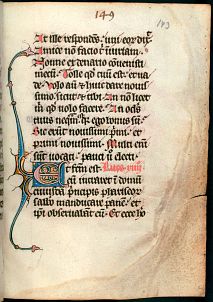 149
143
At ille respondens uni eor dix
Amice non facio t iniuriam
Nonne ex denario conuenisti
mecum Tolle qd tuum est et ua
de Volo au & huic dare nouis
simo sicut & tibi An non licet
m qd uolo facere An ocls
tuus neqm e qr ego bonus su
Sic erunt nouissimi pmi et
primi nouissimi Multi eni
sut uocati pauci u electi
fcm est
cu intraret i domu
cuiusda pncipis phariseor
sabbo manducare pane et
ipi obseruabant eu Et ecce ho